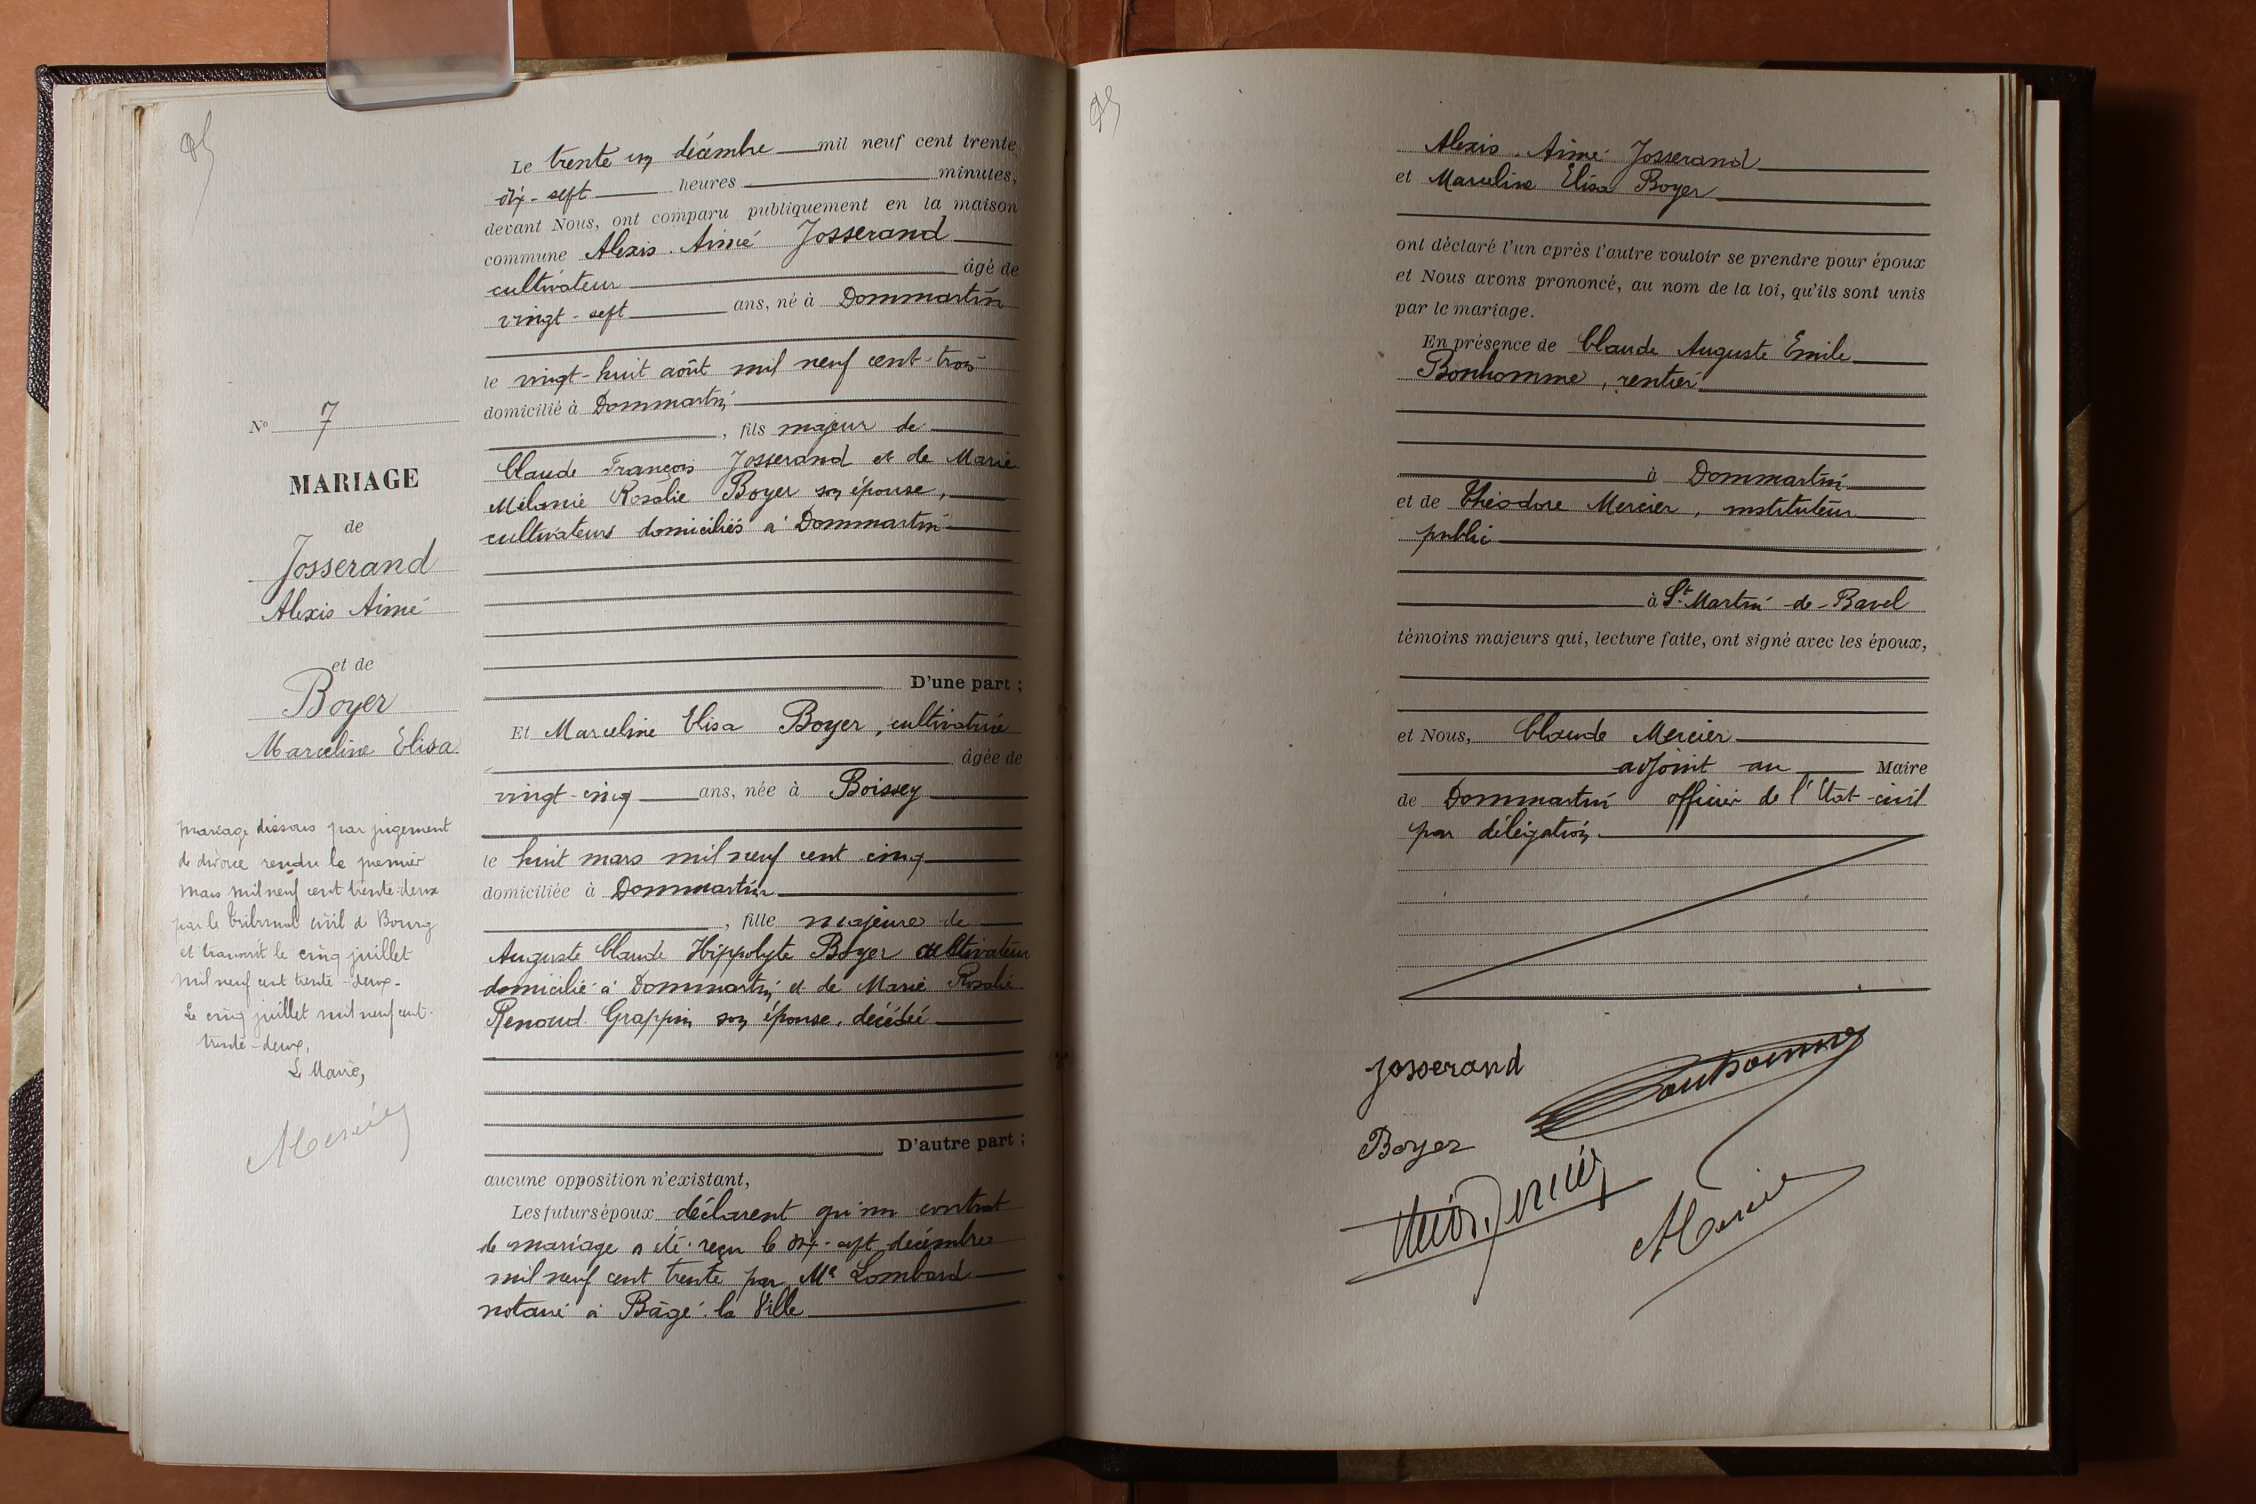 N° 7
MARIAGE
de
Josserand
Alexis Aimé
et de
Boyer
Marceline Elisa
Mariage dissous par jugement
de divorce rendu le premier
mars mil neuf cent trente-deux
par le tribunal civil de Bourg
et transcrit le cinq juillet
mil neuf cent trente-deux.
Le cinq juillet mil neuf cent
trente-deux,
Le Maire,
Mercier
Le trente un décembre mil neuf cent trente
dix-sept heures minutes,
devant Nous, ont comparu publiquement en la maison
commune Alexis Aimé Josserand
cultivateur âgé de
vingt-sept ans, né à Dommartin
le vingt-huit août mil neuf cent-trois
domicilié à Dommartin
, fils majeur de
Claude François Josserand et de Marie
Mélanie Rosalie Boyer son épouse,
cultivateurs domiciliés à Dommartin
D'une part ;
Et Marceline Elisa Boyer, cultivatrice
âgée de
vingt-cinq ans, née à Boissey
le huit mars mil neuf cent cinq
domiciliée à Dommartin
, fille majeure de
Auguste Claude Hippolyte Boyer cultivateur
domicilié à Dommartin et de Marie Rosalie
Renoud-Grappin son épouse, décédée
D'autre part ;
aucune opposition n'existant,
Les futurs époux déclarent qu'un contrat
de mariage a été reçu le dix-sept décembre
mil neuf cent trente par Me Lombard
notaire à Bâgé-la Ville
Alexis Aimé Josserand
et Marceline Elisa Boyer
ont déclaré l'un après l'autre vouloir se prendre pour époux
et Nous avons prononcé, au nom de la loi, qu'ils sont unis
par le mariage.
En présence de Claude Auguste Emile
Bonhomme, rentier
à Dommartin
et de Théodore Mercier, instituteur
public
à St Martin-de-Bavel
témoins majeurs qui, lecture faite, ont signé avec les époux,
et Nous, Claude Mercier
adjoint au Maire
de Dommartin officier de l'Etat-civil
par délégation.
Josserand
Bonhomme
Boyer
Mercier